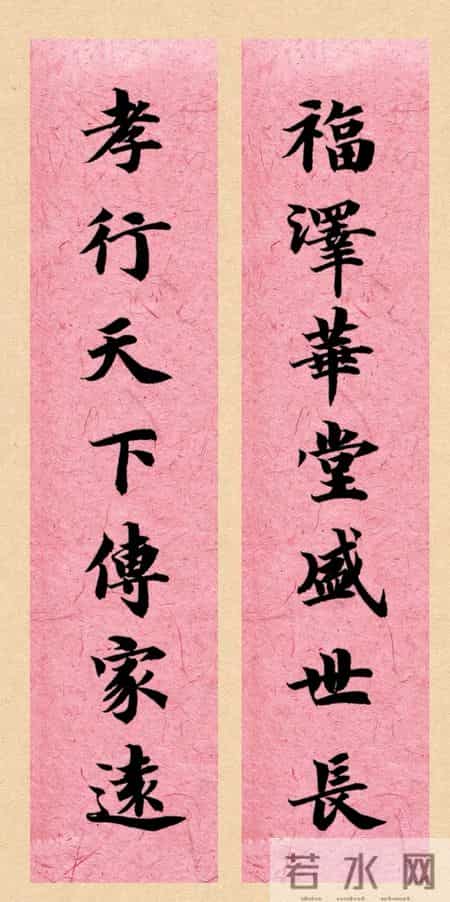 福澤華堂盛世長
孝行天下傳家遠
若水网